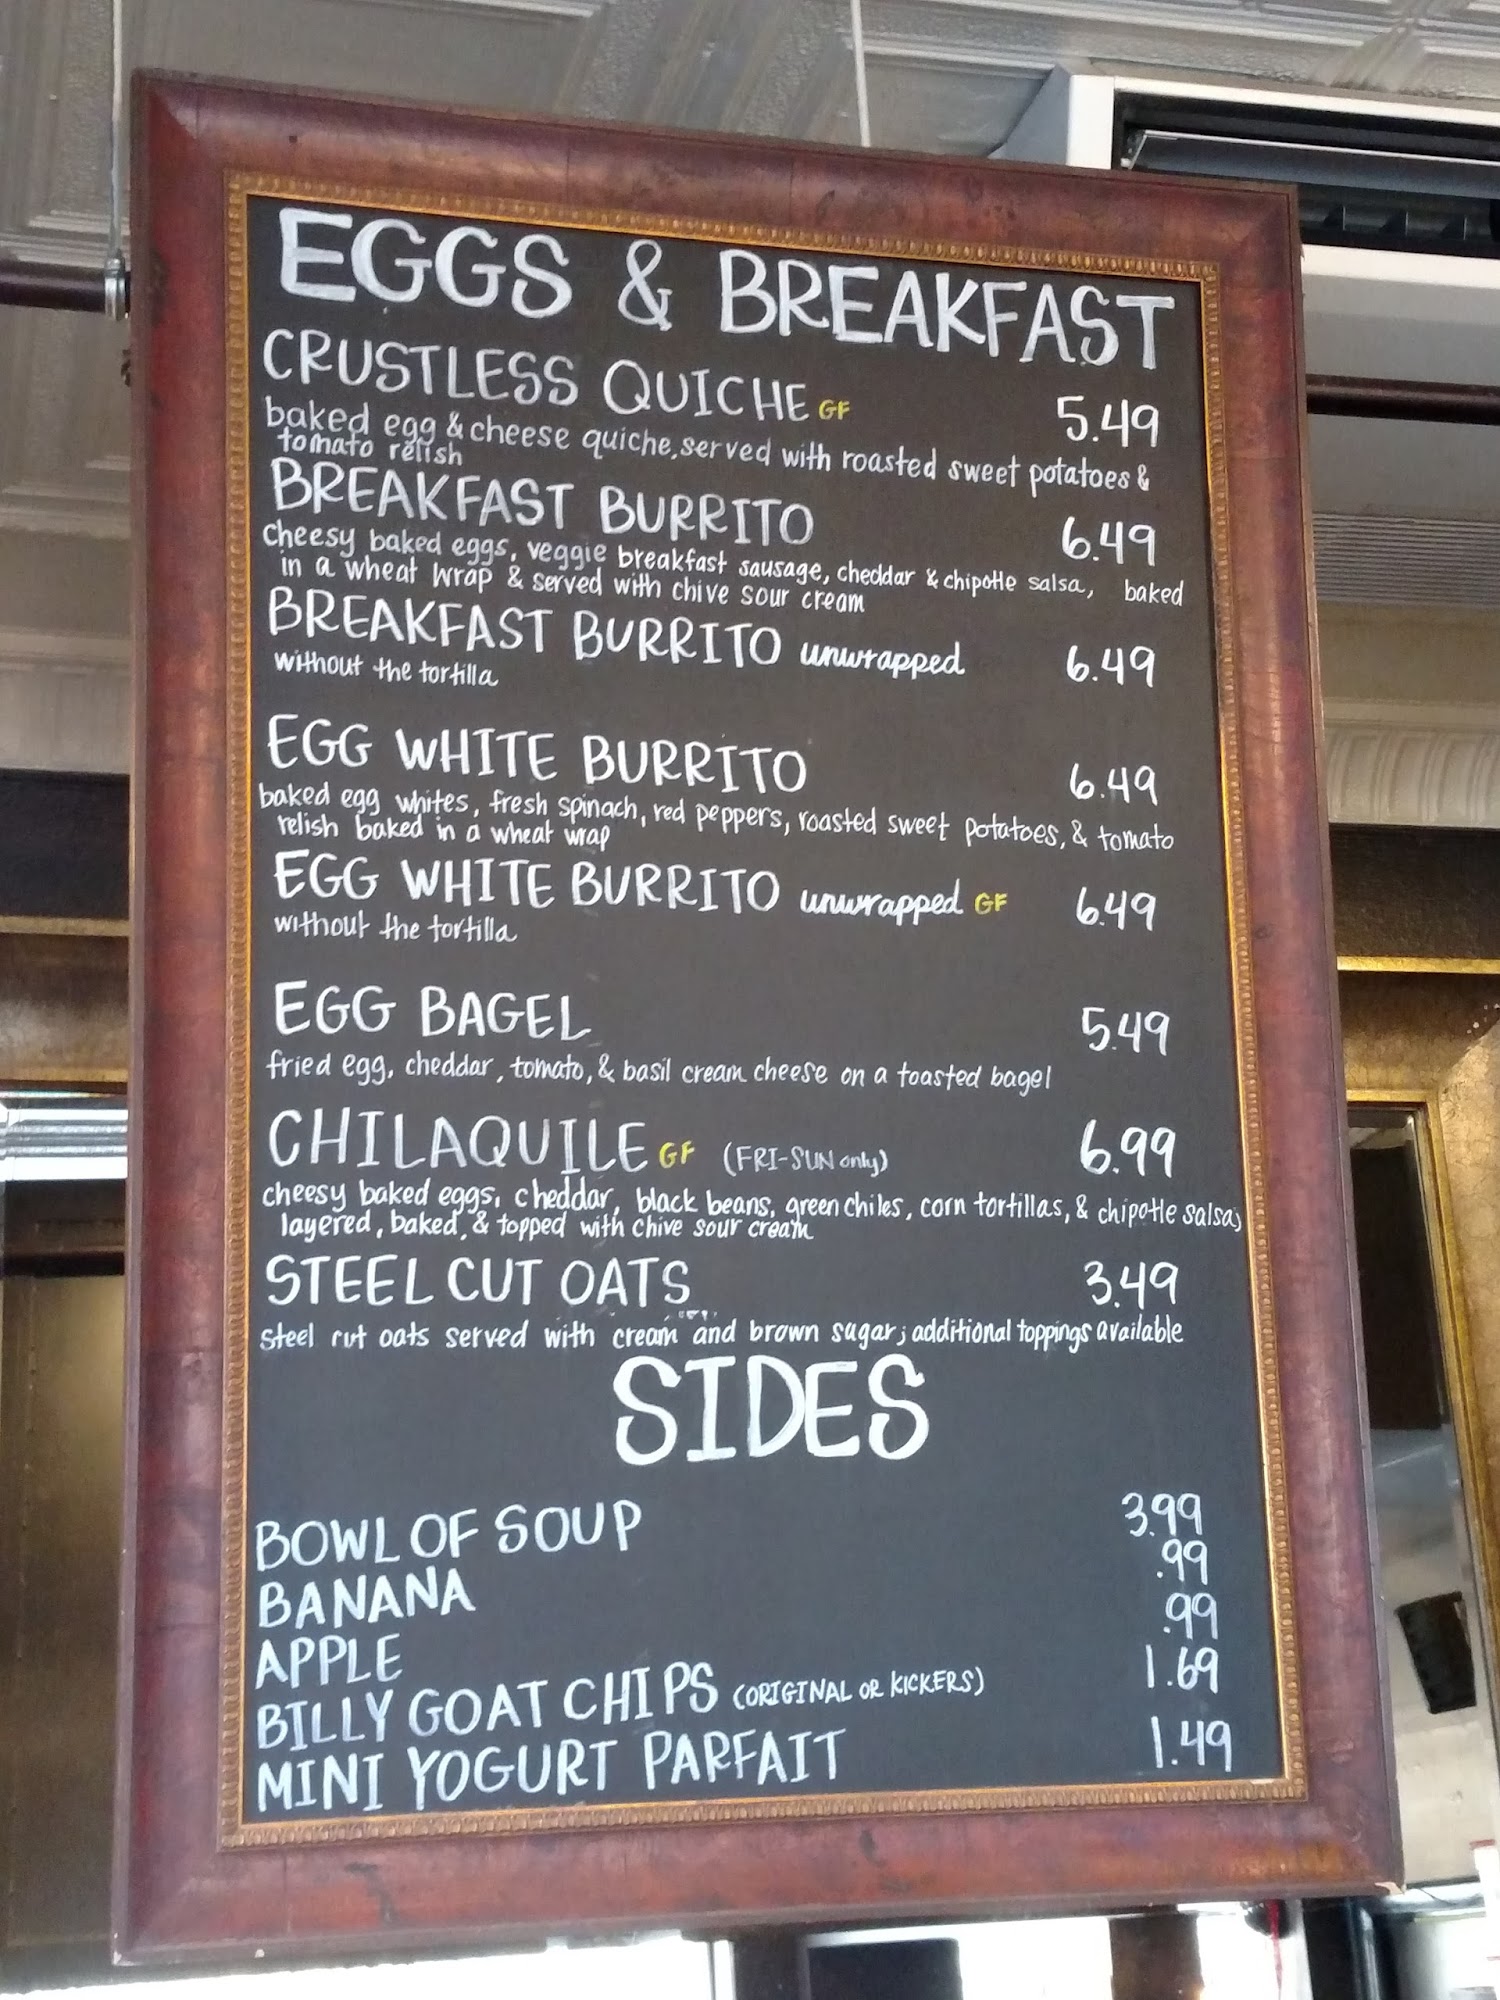 EGGS & BREAKFAST
CRUSTLESS QUICHE GF 5.49
baked egg & cheese quiche, served with roasted sweet potatoes &
tomato relish
BREAKFAST BURRITO 6.49
cheesy baked eggs, veggie breakfast sausage, cheddar & chipotle salsa, baked
in a wheat wrap & served with chive sour cream
BREAKFAST BURRITO unwrapped 6.49
without the tortilla
EGG WHITE BURRITO 6.49
baked egg whites, fresh spinach, red peppers, roasted sweet potatoes, & tomato
relish baked in a wheat wrap
EGG WHITE BURRITO unwrapped GF 6.49
without the tortilla
EGG BAGEL 5.49
fried egg, cheddar, tomato, & basil cream cheese on a toasted bagel
CHILAQUILE GF (FRI-SUN only) 6.99
cheesy baked eggs, cheddar, black beans, green chiles, corn tortillas, & chipotle salsa;
layered, baked, & topped with chive sour cream
STEEL CUT OATS 3.49
steel cut oats served with cream and brown sugar; additional toppings available
SIDES
BOWL OF SOUP 3.99
BANANA .99
APPLE .99
BILLY GOAT CHIPS (ORIGINAL OR KICKERS) 1.69
MINI YOGURT PARFAIT 1.49